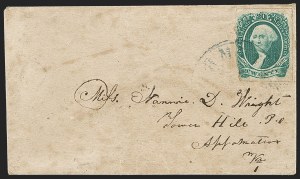 TWENTY
Miss. Nannie. D. Wright
Tower Hill P.O
Appomattox
Va